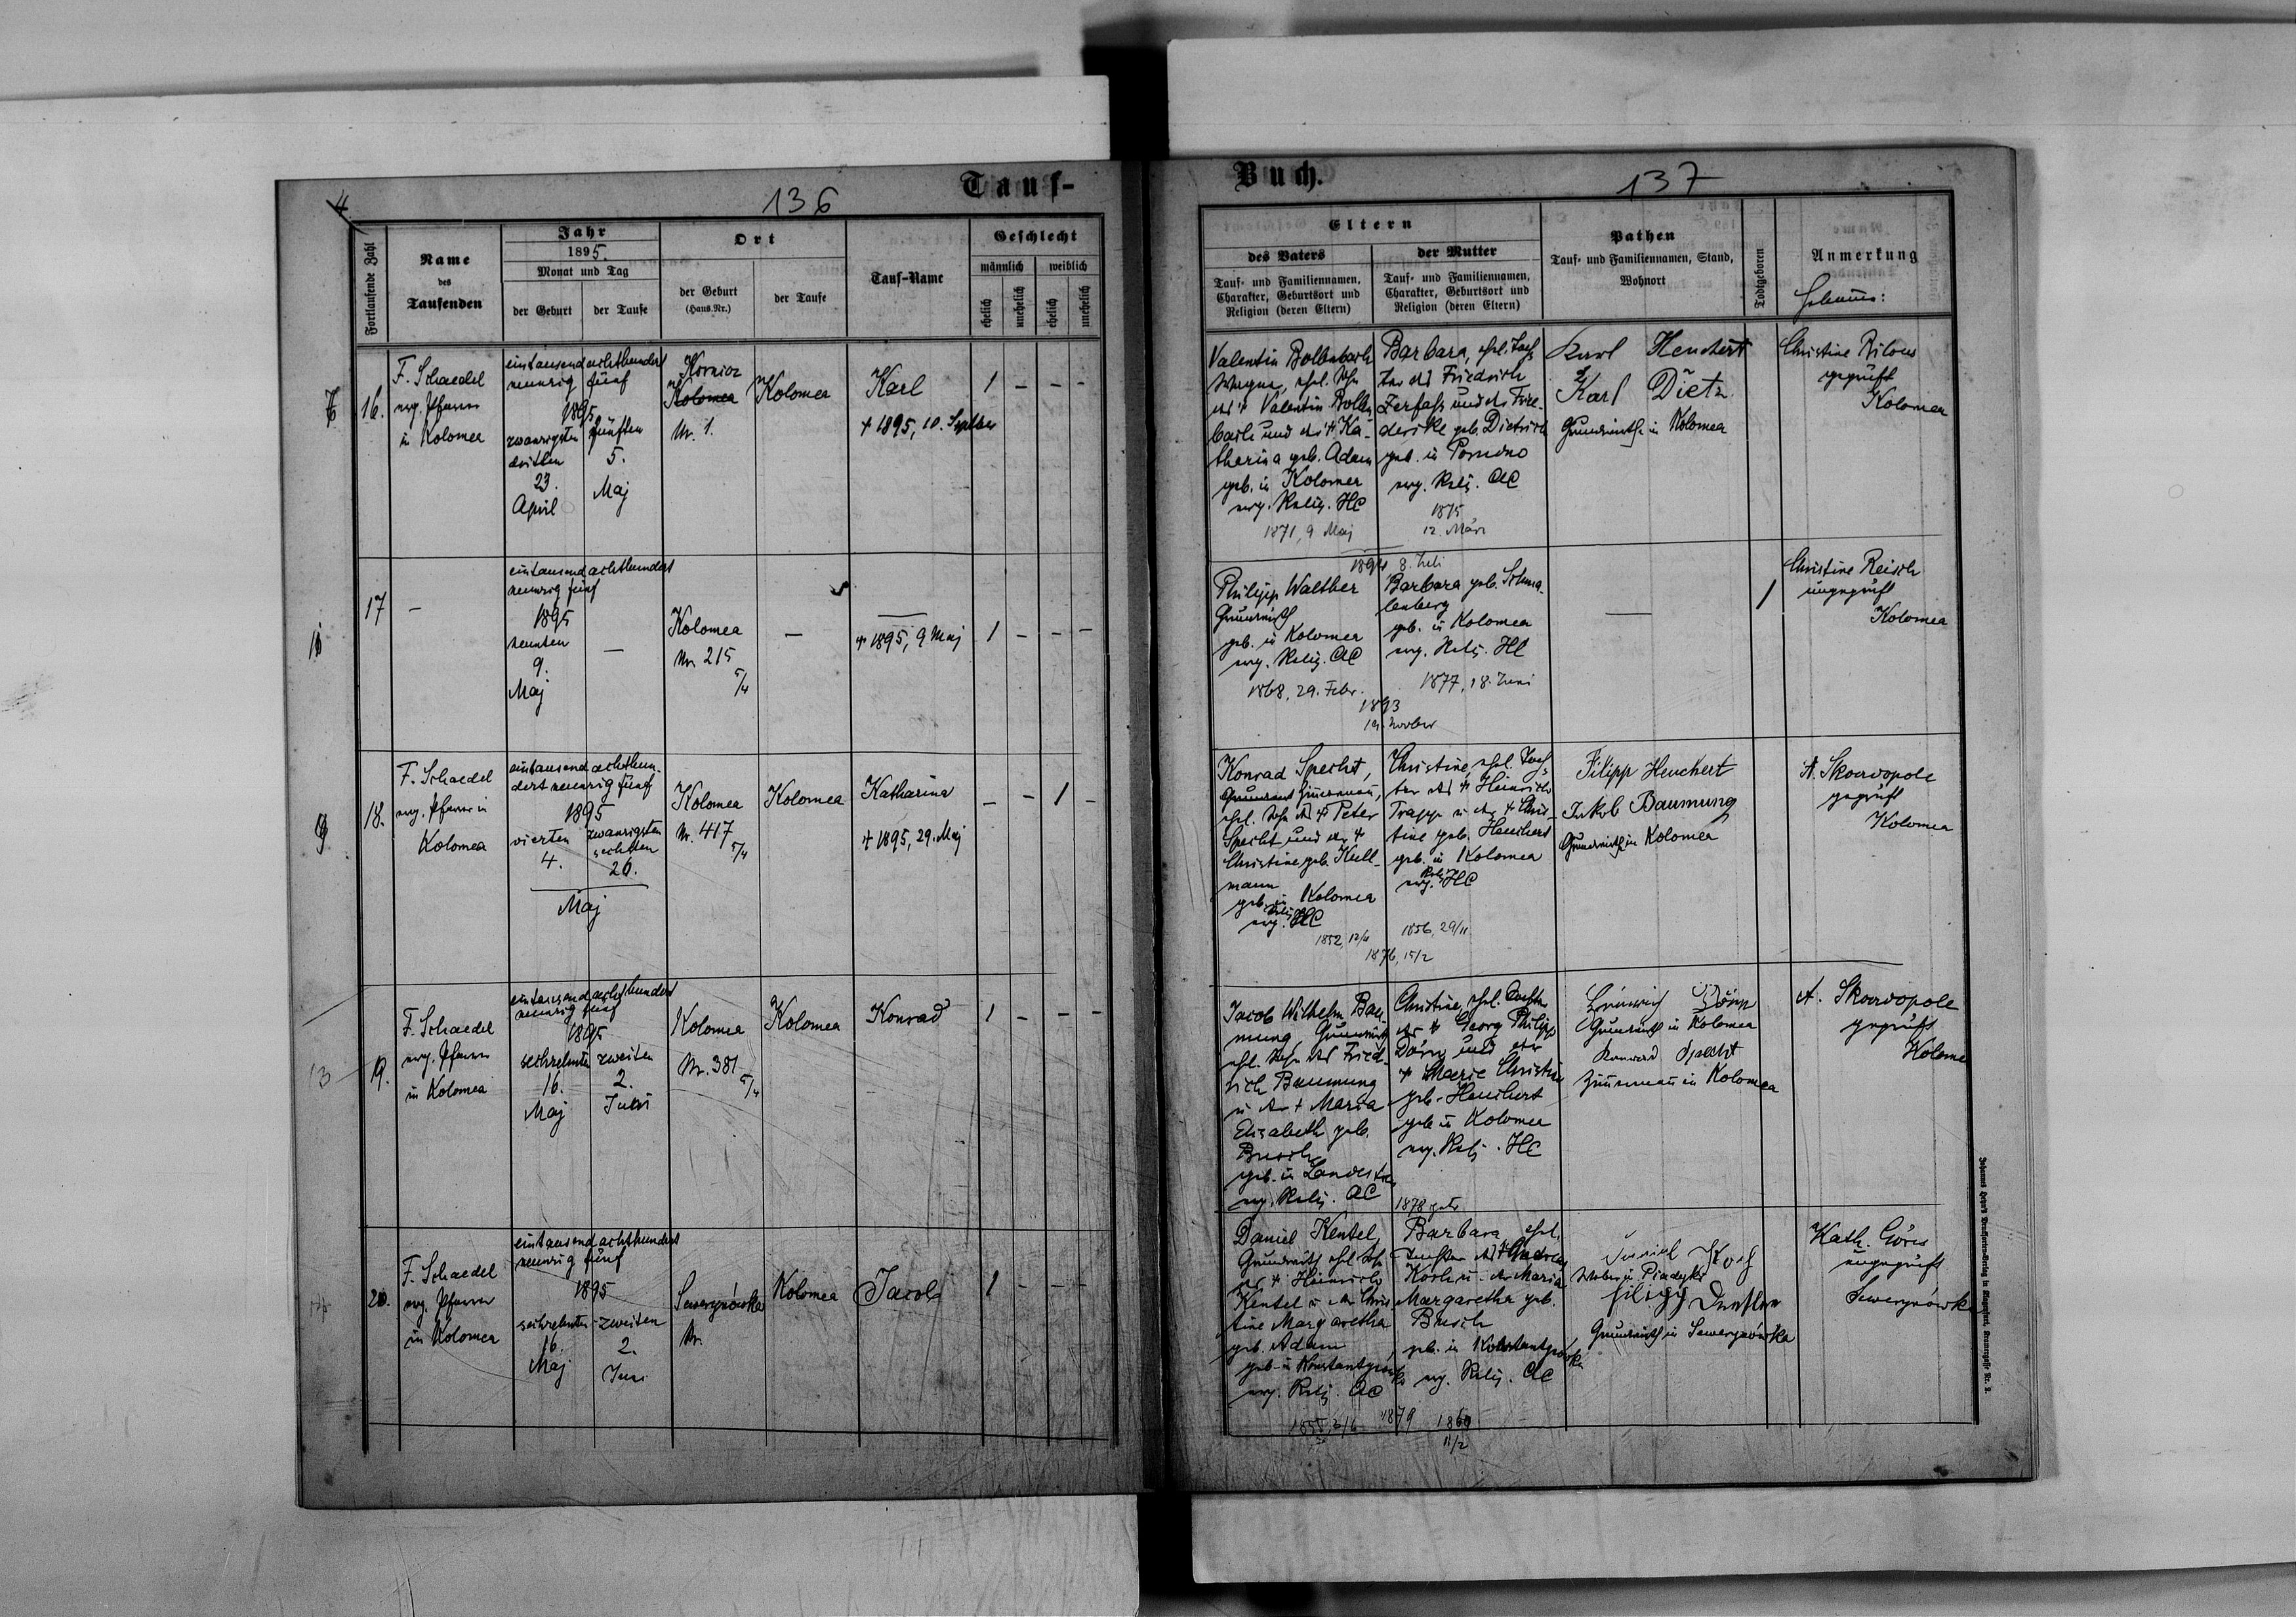 4
136
Tauf-
Fortlaufende Zahl
Name
des
Taufenden
Jahr
1895.
Monat und Tag
der Geburt
der Taufe
Ort
der Geburt
(Haus-Nr.)
der Taufe
Tauf-Name
Geschlecht
männlich
weiblich
ehelich
unehelich
ehelich
unehelich
16.
F. Schaedel
evg. Pfarrer
in Kolomea
eintausend achthundert
neunzig fünf
1895
zwanzigsten
dritten
23.
April
fünften
5.
Maj
Kornicz
Kolomea
Nr. 1.
Kolomea
Karl
† 1895, 10. Septber
1 - - -
17
-
eintausend achthundert
neunzig fünf
1895
neunten
9.
Maj
-
Kolomea
Nr. 215
5/4
-
† 1895, 9 Maj
1 - - -
18.
F. Schaedel
evg. Pfarrer in
Kolomea
eintausend achthun-
dert neunzig fünf
1895
vierten
4.
zwanzigsten
sechsten
26.
Maj
Kolomea
Nr. 417
5/4
Kolomea
Katharina
† 1895, 29. Maj
- - 1 -
13
19.
F. Schaedel
evg. Pfarrer
in Kolomea
eintausend achthundert
neunzig fünf
1895
sechzehnten
16.
Maj
zweiten
2.
Juni
Kolomea
Nr. 381
5/4
Kolomea
Konrad
1 - - -
20.
F. Schaedel
evg. Pfarrer
in Kolomea
eintausend achthundert
neunzig fünf
1895
sechzehnten
16.
Maj
zweiten
2.
Juni
Sewerynówka
Nr.
Kolomea
Jacob
1 - - -
Buch.
137
Eltern
des Vaters
Tauf- und Familiennamen,
Charakter, Geburtsort und
Religion (deren Eltern)
der Mutter
Tauf- und Familiennamen,
Charakter, Geburtsort und
Religion (deren Eltern)
Pathen
Tauf- und Familiennamen, Stand,
Wohnort
Todtgeboren
Anmerkung
Hebamme:
Valentin Bollenbach
Wagner, ehel. Sohn
des † Valentin Bollen
bach und der † Ka-
tharina geb. Adam
geb. in Kolomea
evg. Relig. HC
1871, 9 Maj
Barbara, ehel. Toch
ter des Friedrich
Zerfass und der Frie-
derike geb. Dietrich
geb. in
evg. Relig. AC
1875
12. März
1894 8. Juli
Karl Henchert
Karl Dietz
Grundwirthe in Kolomea
Christine
geprüft
Kolomea
Philipp Walther
Grundwirth
geb. in Kolomea
evg. Relig. AC
1868, 29. Febr.
Barbara geb. Schma-
lenberg
geb. in Kolomea
evg. Relig. HC
1877, 18. Juni
1893
19. Novber
1
Christine Reisch
ungeprüft
Kolomea
Konrad Specht,
Grundwirth Zimmermann,
ehel. Sohn des † Peter
Specht und der †
Christine geb. Kull-
mann
geb. in Kolomea
evg. Relig. HC
1852, 12/4
Christine, ehel. Toch-
ter des † Heinrich
Trapp u. der † Chris-
tine geb. Henchert
geb. in Kolomea
evg. Relig. HC
1856, 29/11
1876, 15/2
Filipp Henchert
Jakob Baumung
Grundwirthe in Kolomea
A. Skowopole
geprüft
Kolomea
Jacob Wilhelm Bau-
mung, Grundwirth
ehel. Sohn des Fried-
rich Baumung
u. der † Maria
Elisabeth geb.
Busch
geb. in Landestreu
evg. Relig. AC
Christine, ehel. Tochter
des † Georg Philipp
Dörr und der
† Marie Christine
geb. Henchert
geb. in Kolomea
evg. Relig. HC
1878
Heinrich Dörr
Grundwirth in Kolomea
Konrad Specht
Zimmermann in Kolomea
A. Skowopole
geprüft
Kolomea
Daniel Kentel,
Grundwirth ehel. Sohn
des † Heinrich
Kentel u. der Chris
tine Margaretha
geb. Adam
geb. in Konstantynówka
evg. Relig. AC
Barbara, ehel.
Tochter des † Andreas
Koch u. der Maria
Margaretha geb.
Busch
geb. in Konstantynówka
evg. Relig. AC
1879
1860
11/2
Daniel Koch
Weber in Piadyki
Filipp
Grundwirth in Sewerynówka
Kath. Göres
ungeprüft
Sewerynówka